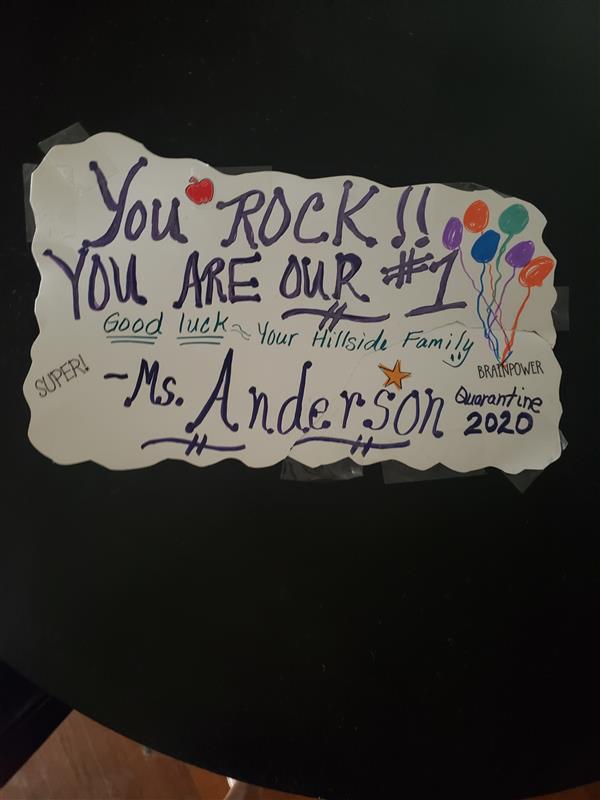 You ROCK!!
YOU ARE OUR #1
Good luck ~ Your Hillside Family
SUPER!
~Ms. Anderson
BRAINPOWER
Quarantine
2020